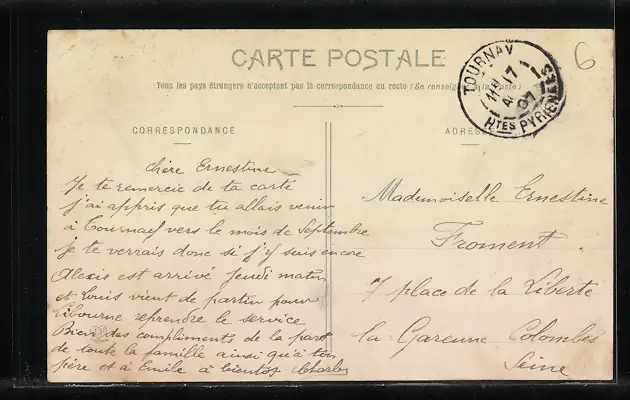 CARTE POSTALE
Tous les pays étrangers n'acceptent pas la correspondance au recto (Se renseigner à la Poste)
CORRESPONDANCE
ADRESSE
TOURNAY
17
07
Htes PYRÉNÉES
6
chère Ernestine
Je te remercie de ta carte
j'ai appris que tu allais venir
à Tournay vers le mois de Septembre
je te verrais donc si j'y suis encore
Alexis est arrivé Jeudi matin
et Louis vient de partir pour
Libourne reprendre le service
Bien des compliments de la part
de toute la famille ainsi qu'à ton
père et à Emile à bientôt Charles
Mademoiselle Ernestine
Froment
7 place de la Liberté
la Garenne Colombes
Seine